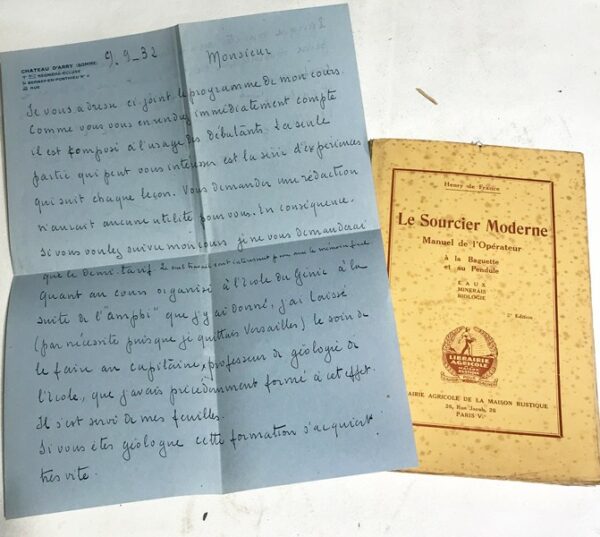 CHATEAU D'ARRY (SOMME)
REGNIÈRE-ÉCLUSE
BERNAY-EN-PONTHIEU N° 4
RUE
9_9_32
Monsieur
Je vous adresse ci joint le programme de mon cours.
Comme vous vous en rendrez immédiatement compte
il est composé à l'usage des débutants. La seule
partie qui peut vous intéresser est la série d'expériences
qui suit chaque leçon. Vous demander une rédaction
n'aurait aucune utilité pour vous. En conséquence,
si vous voulez suivre mon cours je ne vous demanderai
que le demi-tarif.
Quant au cours organisé à l'École du Génie à la
suite de l'"amphi" que j'y ai donné, j'ai laissé
(par nécessité puisque je quittais Versailles) le soin de
le faire au capitaine, professeur de géologie de
l'École, que j'avais précédemment formé à cet effet.
Il s'est servi de mes feuilles.
Si vous êtes géologue cette formation s'acquiert
très vite.
Henry de France
Le Sourcier Moderne
Manuel de l'Opérateur
à la Baguette
et au Pendule
EAUX
MINERAIS
BIOLOGIE
2e Édition
LIBRAIRIE
AGRICOLE
MAISON
RUSTIQUE
AIRIE AGRICOLE DE LA MAISON RUSTIQUE
26, Rue Jacob, 26
PARIS Ve